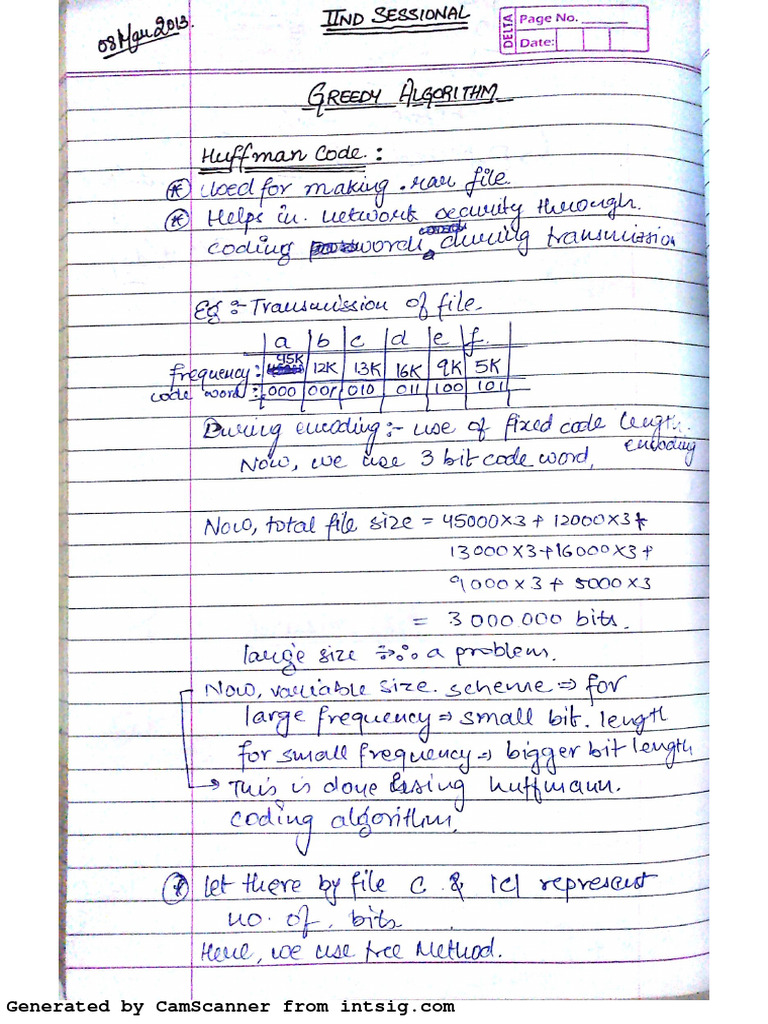 08 Mar 2013.
IIND SESSIONAL
DELTA
Page No.
Date:
GREEDY ALGORITHM
Huffman Code :
* Used for making .rar file.
* Helps in network security through
coding words during transmission
Eg :- Transmission of file.
a b c d e f
frequency : 45K 12K 13K 16K 9K 5K
code word : 000 001 010 011 100 101
During encoding :- use of fixed code length
encoding
Now, we use 3 bit code word.
Now, total file size = 45000×3 + 12000×3+
13000×3+16000×3+
9000×3 + 5000×3
= 3000.000 bits.
large size ∴ a problem.
Now, variable size. scheme ⇒ for
large frequency ⇒ small bit. length
for small frequency ⇒ bigger bit length
→ This is done using huffmann.
coding algorithm.
* Let there by file C & |C| represent
no. of. bits
Here, we use tree Method.
Generated by CamScanner from intsig.com